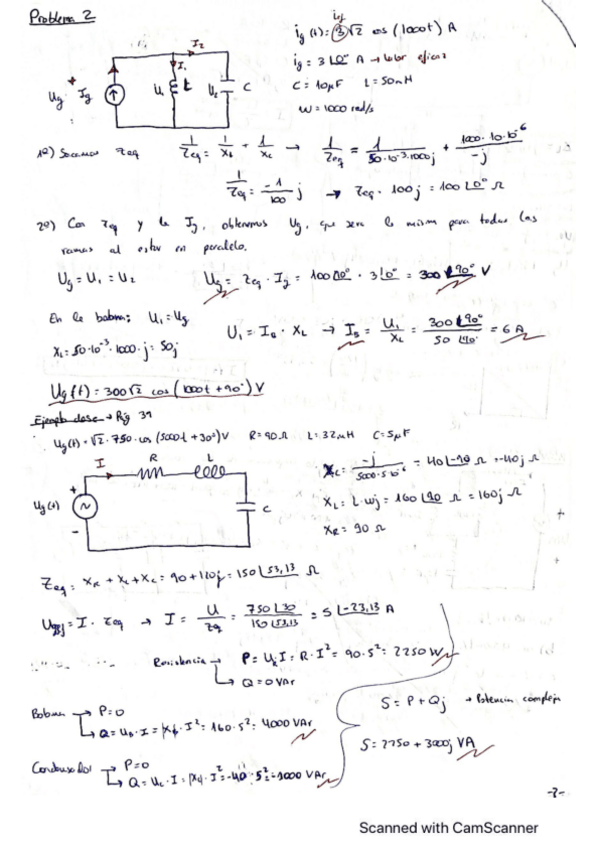 Problema 2
ig(t): 3√2 cos (1000t) A
ig = 3 ∠0° A → valor eficaz
C = 10μF L = 50mH
W = 1000 rad/s
I₂
I₁
Ug Ig U₁ U₂ C
1º) Sacamos Zeq 1/Zeq = 1/XL + 1/XC → 1/Zeq = 1/(50·10⁻³·1000j) + 1000·10·10⁻⁶/-j
1/Zeq = -1/100 j → Zeq = 100j = 100 ∠0° Ω
2º) Con Zeq y la Ig, obtenemos Ug, que sera la misma para todas las
ramas al estar en paralelo.
Ug = U₁ = U₂ Ug = Zeq · Ig = 100 ∠0° · 3∠0° = 300 ∠90° V
En la bobina; U₁ = Ug U₁ = IB · XL → IB = U₁/XL = 300 ∠90°/50 ∠90° = 6 A
XL = 50·10⁻³·1000·j = 50j
Ug(t) = 300√2 cos (1000t + 90°) V
Ejemplo clase → Pág 39
Ug(t) = √2 · 750 · cos (5000t + 30°) V R = 90Ω L = 32mH C = 5μF
I R L
Ug(t) C
XC = -j/(5000·5·10⁻⁶) = 40∠-90 Ω = -40j Ω
XL = L·wj = 160∠90 Ω = 160j Ω
XR = 90 Ω
Zeq = XR + XL + XC = 90 + 120j = 150∠53,13 Ω
= I · Zeq → I = U/Zq = 750∠30/150∠53,13 = 5∠-23,13 A
Resistencia → P = UR·I = R·I² = 90·5² = 2250 W
→ Q = 0 VAr
Bobina → P = 0
→ Q = UB·I = |X|·I² = 160·5² = 4000 VAr
S = P + Qj → Potencia compleja
S = 2250 + 3000j VA
Condensador → P = 0
→ Q = UC·I = |X|·I² = -40·5² = -1000 VAr
-7-
Scanned with CamScanner